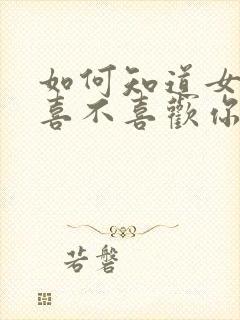 如何知道女
喜不喜歡你
若磐